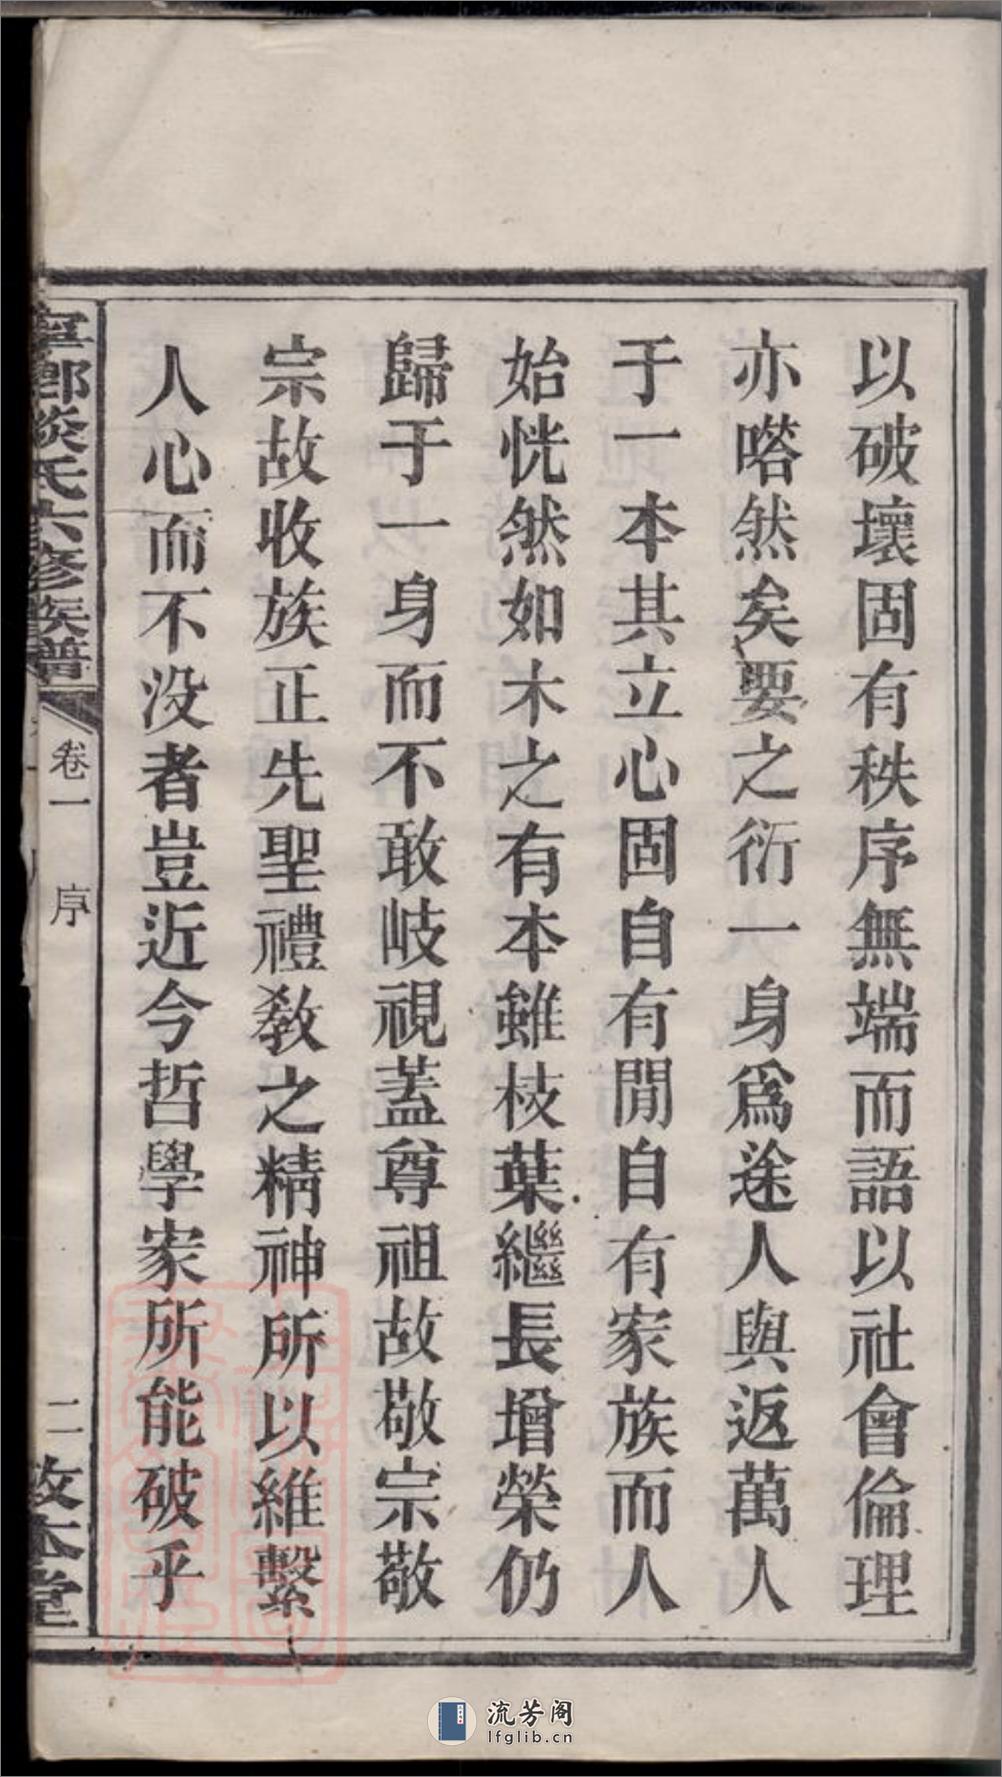 以破壞固有秩序無端而語以社會倫理
亦嗒然矣要之衍一身爲途人與返萬人
于一本其立心固自有閒自有家族而人
始恍然如木之有本雖枝葉繼長增榮仍
歸于一身而不敢岐視蓋尊祖故敬宗敬
宗故收族正先聖禮教之精神所以維繫
人心而不没者豈近今哲學家所能破乎
寧鄉談氏六修族譜
卷一 序
二 敦本堂
流芳阁
lfglib.cn